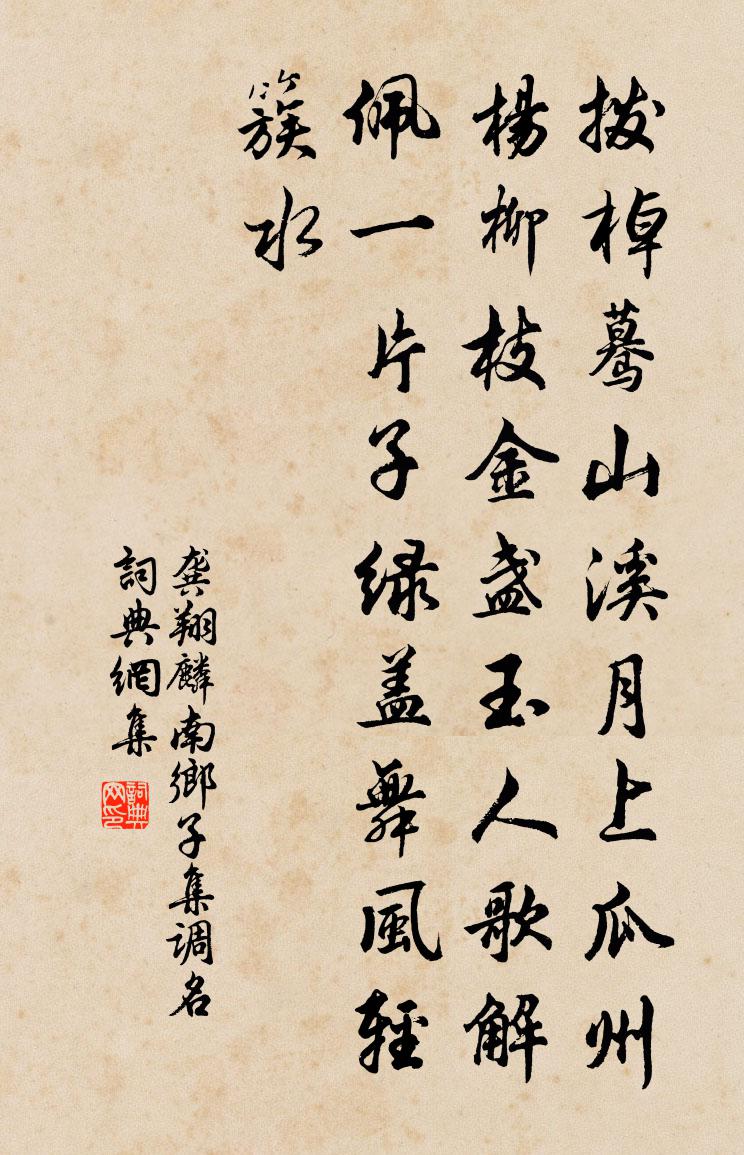 拨棹蓦山溪月上瓜州
楊柳枝金盏玉人歌解
佩一片子绿盖舞風輕
簇水
龚翔麟南鄉子集调名
詞典網集
詞典网印